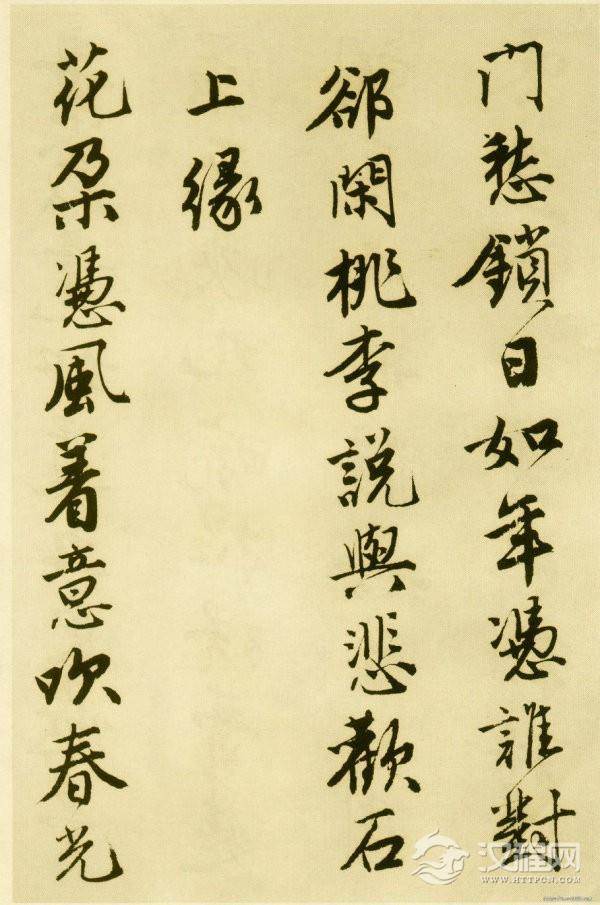 門愁鎖日如年憑誰對
郤閑桃李說與悲歡石
上緣
花朶憑風着意吹春光
汉程网
WWW.HTTPCN.COM